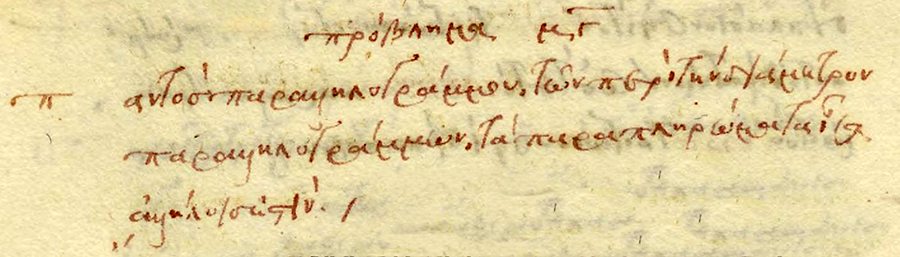 πρόβλημα μγ
π αντὸσ παραλληλογράμμου, τῶν περὶ τὴν διάμετρον
παραλληλογράμμων, τὰ παραπληρώματα ἴσα
ἀλλήλοισ ἐστίν.